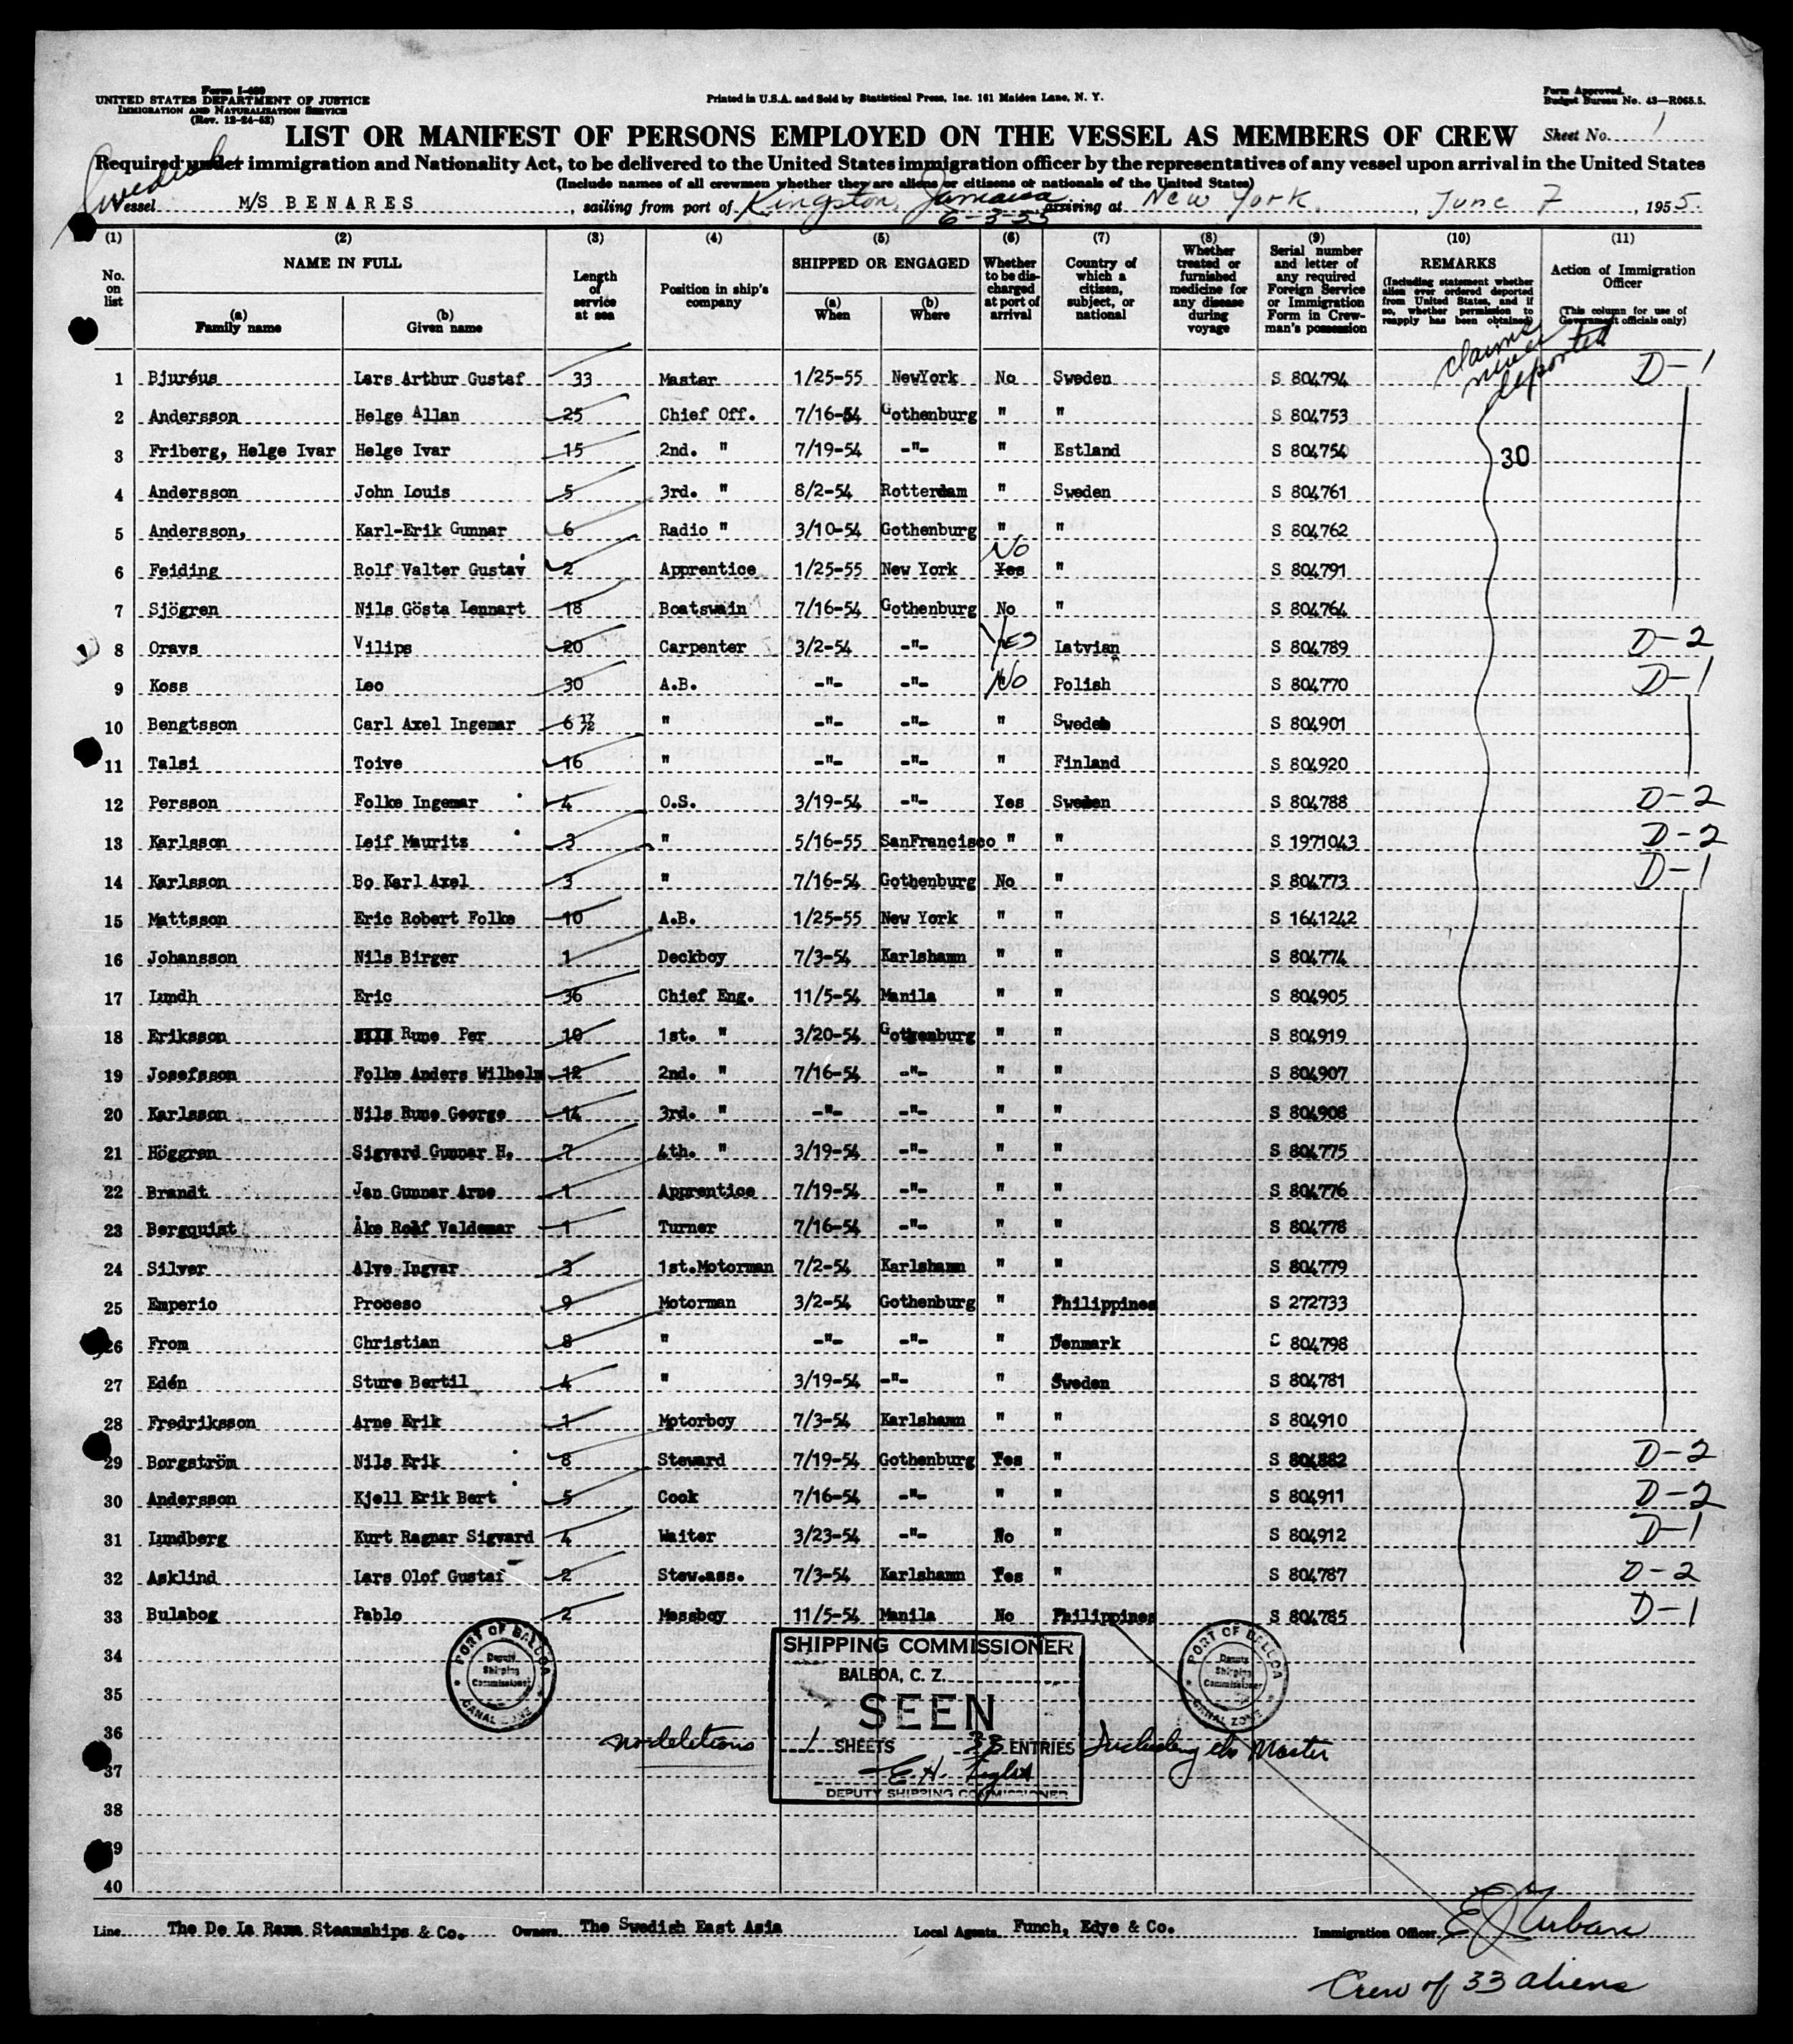 Form I-480
UNITED STATES DEPARTMENT OF JUSTICE
IMMIGRATION AND NATURALIZATION SERVICE
(Rev. 12-24-52)
Printed in U.S.A. and Sold by Statistical Press, Inc. 161 Maiden Lane, N. Y.
Form Approved.
Budget Bureau No. 43—R065.5.
LIST OR MANIFEST OF PERSONS EMPLOYED ON THE VESSEL AS MEMBERS OF CREW
Sheet No. 1
Required under immigration and Nationality Act, to be delivered to the United States immigration officer by the representatives of any vessel upon arrival in the United States
(Include names of all crewmen whether they are aliens or citizens or nationals of the United States)
Swedish
Vessel M/S BENARES, sailing from port of Kingston, Jamaica 6-3-55 arriving at New York, June 7, 1955.
(1) (2) (3) (4) (5) (6) (7) (8) (9) (10) (11)
No. on list
NAME IN FULL
(a) Family name
(b) Given name
Length of service at sea
Position in ship's company
SHIPPED OR ENGAGED
(a) When
(b) Where
Whether to be discharged at port of arrival
Country of which a citizen, subject, or national
Whether treated or furnished medicine for any disease during voyage
Serial number and letter of any required Foreign Service or Immigration Form in Crewman's possession
REMARKS
(Including statement whether alien ever ordered deported from United States, and if so, whether permission to reapply has been obtained)
Action of Immigration Officer
(This column for use of Government officials only)
claims never deported
1 Bjuréus Lars Arthur Gustaf 33 Master 1/25-55 NewYork No Sweden S 804794 D-1
2 Andersson Helge Allan 25 Chief Off. 7/16-54 Gothenburg " " S 804753
3 Friberg, Helge Ivar Helge Ivar 15 2nd. " 7/19-54 -"- " Estland S 804754 30
4 Andersson John Louis 5 3rd. " 8/2-54 Rotterdam " Sweden S 804761
5 Andersson, Karl-Erik Gunnar 6 Radio " 3/10-54 Gothenburg " " S 804762
6 Feiding Rolf Valter Gustav 2 Apprentice 1/25-55 New York Yes No " S 804791
7 Sjögren Nils Gösta Lennart 18 Boatswain 7/16-54 Gothenburg No " S 804764
8 Oravs Vilips 20 Carpenter 3/2-54 -"- Yes Latvian S 804789 D-2
9 Koss Leo 30 A.B. -"- -"- No Polish S 804770 D-1
10 Bengtsson Carl Axel Ingemar 6 " -"- -"- " Sweden S 804901
11 Talsi Toive 16 " -"- -"- " Finland S 804920
12 Persson Folke Ingemar 4 O.S. 3/19-54 -"- Yes Sweden S 804788 D-2
13 Karlsson Leif Mauritz 3 " 5/16-55 SanFrancisco " " S 1971043 D-2
14 Karlsson Bo Karl Axel 3 " 7/16-54 Gothenburg No " S 804773 D-1
15 Mattsson Eric Robert Folke 10 A.B. 1/25-55 New York " " S 1641242
16 Johansson Nils Birger 1 Deckboy 7/3-54 Karlshamn " " S 804774
17 Lundh Eric 36 Chief Eng. 11/5-54 Manila " " S 804905
18 Eriksson Rune Per 10 1st. " 3/20-54 Gothenburg " " S 804919
19 Josefsson Folke Anders Wilhelm 12 2nd. " 7/16-54 -"- " " S 804907
20 Karlsson Nils Rune George 14 3rd. " -"- -"- " " S 804908
21 Höggren Sigvard Gunnar H. 7 4th. " 3/19-54 -"- " " S 804775
22 Brandt Jan Gunnar Arne 1 Apprentice 7/19-54 -"- " " S 804776
23 Bergquist Åke Rolf Valdemar 1 Turner 7/16-54 -"- " " S 804778
24 Silver Alve Ingvar 3 1st.Motorman 7/2-54 Karlshamn " " S 804779
25 Emperio Proceso 9 Motorman 3/2-54 Gothenburg " Philippines S 272733
26 From Christian 8 " -"- -"- " Denmark S 804798
27 Edén Sture Bertil 4 " 3/19-54 -"- " Sweden S 804781
28 Fredriksson Arne Erik 1 Motorboy 7/3-54 Karlshamn " " S 804910
29 Borgström Nils Erik 8 Steward 7/19-54 Gothenburg Yes " S 804882 D-2
30 Andersson Kjell Erik Bert 5 Cook 7/16-54 -"- " " S 804911 D-2
31 Lundberg Kurt Ragnar Sigvard 4 Waiter 3/23-54 -"- No " S 804912 D-1
32 Asklind Lars Olof Gustaf 2 Stew.ass. 7/3-54 Karlshamn Yes " S 804787 D-2
33 Bulabog Pablo 2 Messboy 11/5-54 Manila No Philippines S 804785 D-1
34
35
36
37
38
39
40
PORT OF BALBOA
Deputy Shipping Commissioner
CANAL ZONE
SHIPPING COMMISSIONER
BALBOA, C. Z.
SEEN
no deletions 1 SHEETS 33 ENTRIES Including the Master
E.H.
DEPUTY SHIPPING COMMISSIONER
PORT OF BALBOA
Deputy Shipping Commissioner
CANAL ZONE
Line The De La Rama Steamships & Co. Owners The Swedish East Asia Local Agents Funch, Edye & Co. Immigration Officer E J Urban
Crew of 33 aliens